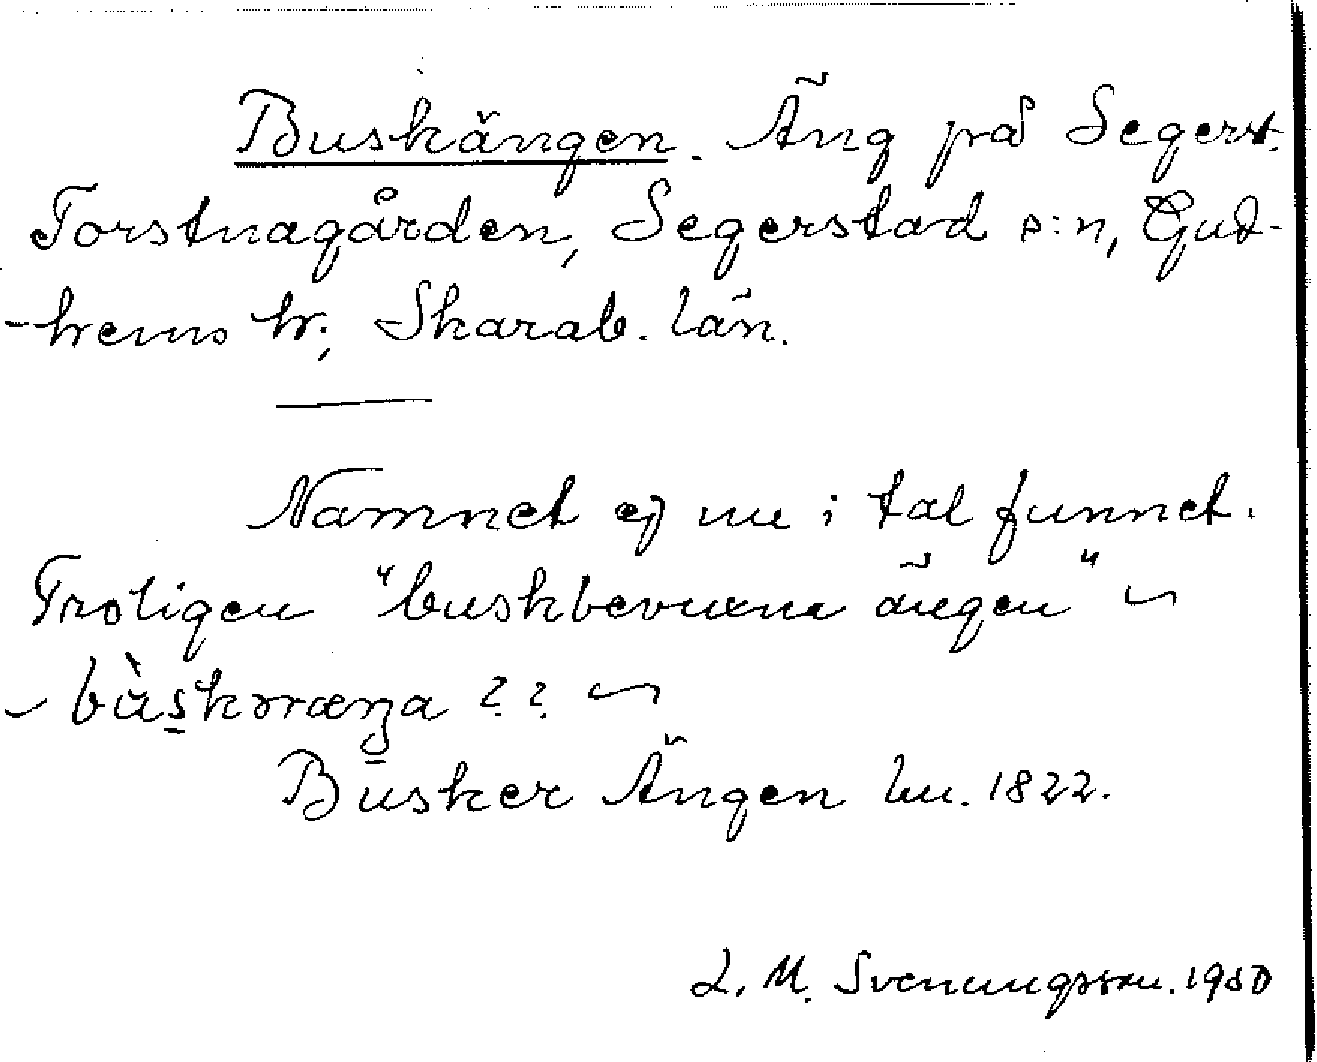 Buskängen. Äng på Segerst.
Torstnagården, Segerstad s:n, Gud-
-hems hr, Skarab. län.
Namnet ej nu i tal funnet.
Troligen "buskbevuxna ängen" ~
~ bùskɔræŋa ?? ~
Busker Ängen lm. 1822.
L. M. Svenungsson. 1950